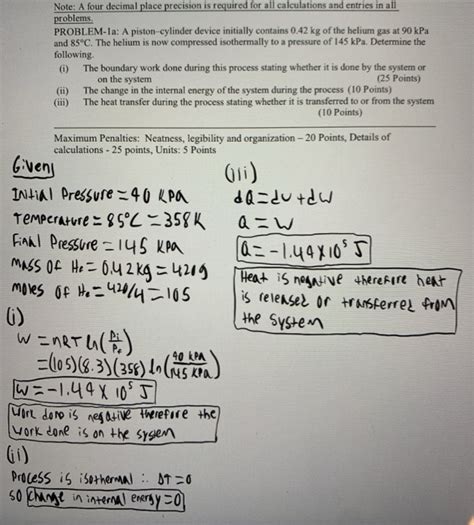 Note: A four decimal place precision is required for all calculations and entries in all
problems.
PROBLEM-1a: A piston-cylinder device initially contains 0.42 kg of the helium gas at 90 kPa
and 85°C. The helium is now compressed isothermally to a pressure of 145 kPa. Determine the
following.
(i) The boundary work done during this process stating whether it is done by the system or
on the system (25 Points)
(ii) The change in the internal energy of the system during the process (10 Points)
(iii) The heat transfer during the process stating whether it is transferred to or from the system
(10 Points)
Maximum Penalties: Neatness, legibility and organization – 20 Points, Details of
calculations - 25 points, Units: 5 Points
Given
Initial Pressure = 90 kPa
Temperature = 85°C = 358K
Final Pressure = 145 kPa
Mass of He = 0.42 kg = 420g
moles of He = 420/4 = 105
(i)
W = nRT ln(Pi/Pf)
=(105)(8.3)(358) ln(90 kPa/145 kPa)
W = -1.44 x 10^5 J
Work done is negative therefore the
work done is on the system
(ii)
Process is isothermal ∴ ΔT = 0
so change in internal energy = 0
(iii)
dQ = du + dw
Q = W
Q = -1.44 x 10^5 J
Heat is negative therefore heat
is released or transferred from
the system